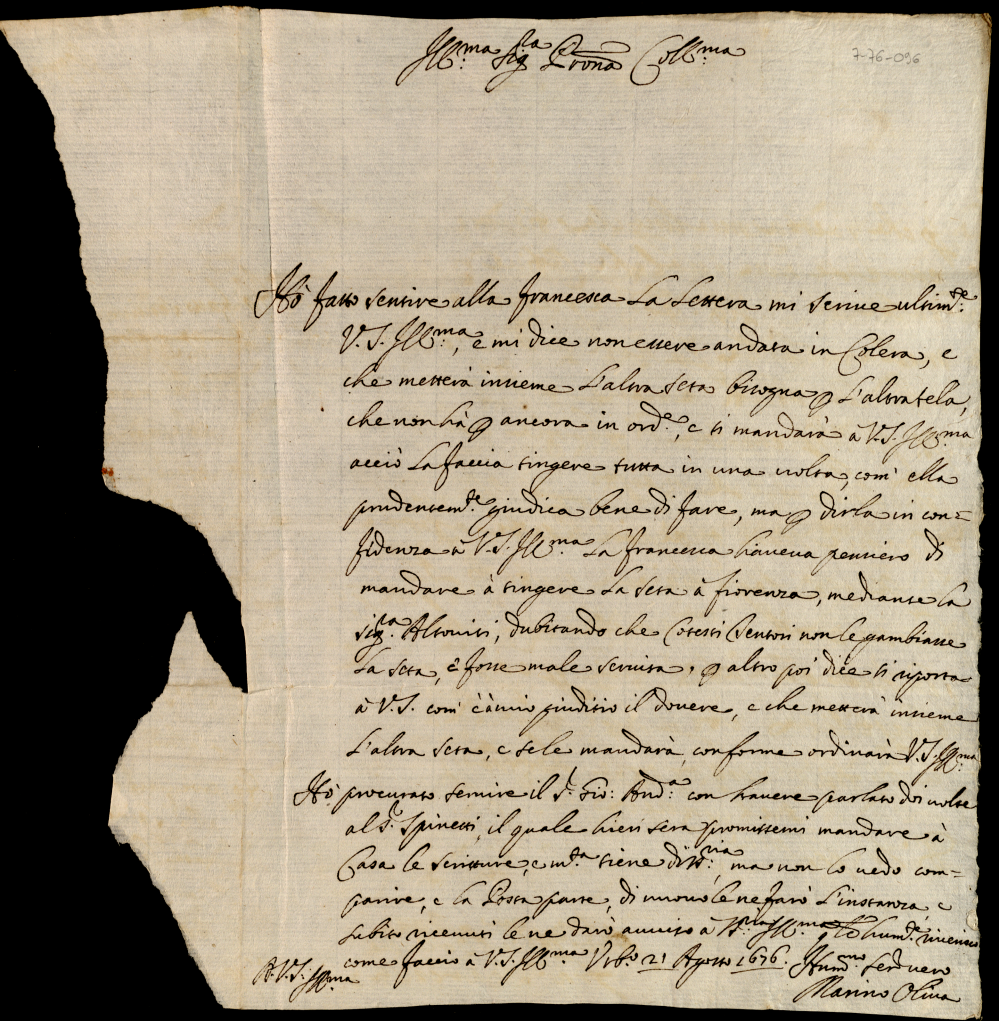 Ill:ma Sig:ra Prona Coll:ma
7-76-096
Hò fatto sentire alla Francesca La Lettera mi scriue ultim:te
V. S. Ill:ma, e mi dice non essere andata in Colera, e
che metterà insieme L'altra seta bisogna p L'altra tela,
che non hà p ancora in ord:e, e si mandarà à V. S. Ill:ma
acciò La faccia tingere tutta in una uolta, com' ella
prudentem:te giudica bene di fare, ma p dirla in con=
fidenza à V. S. Ill:ma La Francesca haueua pensiero di
mandare à tingere La seta à fiorenza, mediante la
sig:ra Altouiti, dubitando che Cotesti tentori non le gambiasse
La seta, è fosse male seruita, p altro poi dice si riporta
à V. S. com' è à mio giuditio il douere, e che metterà insieme
L'altra seta, e se le mandarà, conforme ordinarà V. S. Ill:ma
Hò procurato seruire il S:r Gio: And:a con hauere parlato doi uolte
al S:r Spinetti, il quale hieri sera promissemi mandare à
Casa le scritture, e m:ta tiene di ma non lo uedo com=
parire, e la Posta parte, di nuouo le ne farò L'instanza, e
subito riceuuti le ne darò auuiso à V. S. Ill:ma hum:te riuerisco
come faccio à V. S. Ill:ma Vrb:o 21 Agosto 1676. Hum:mo Ser:re uero
A V. S. Ill:ma
Marino Oliua